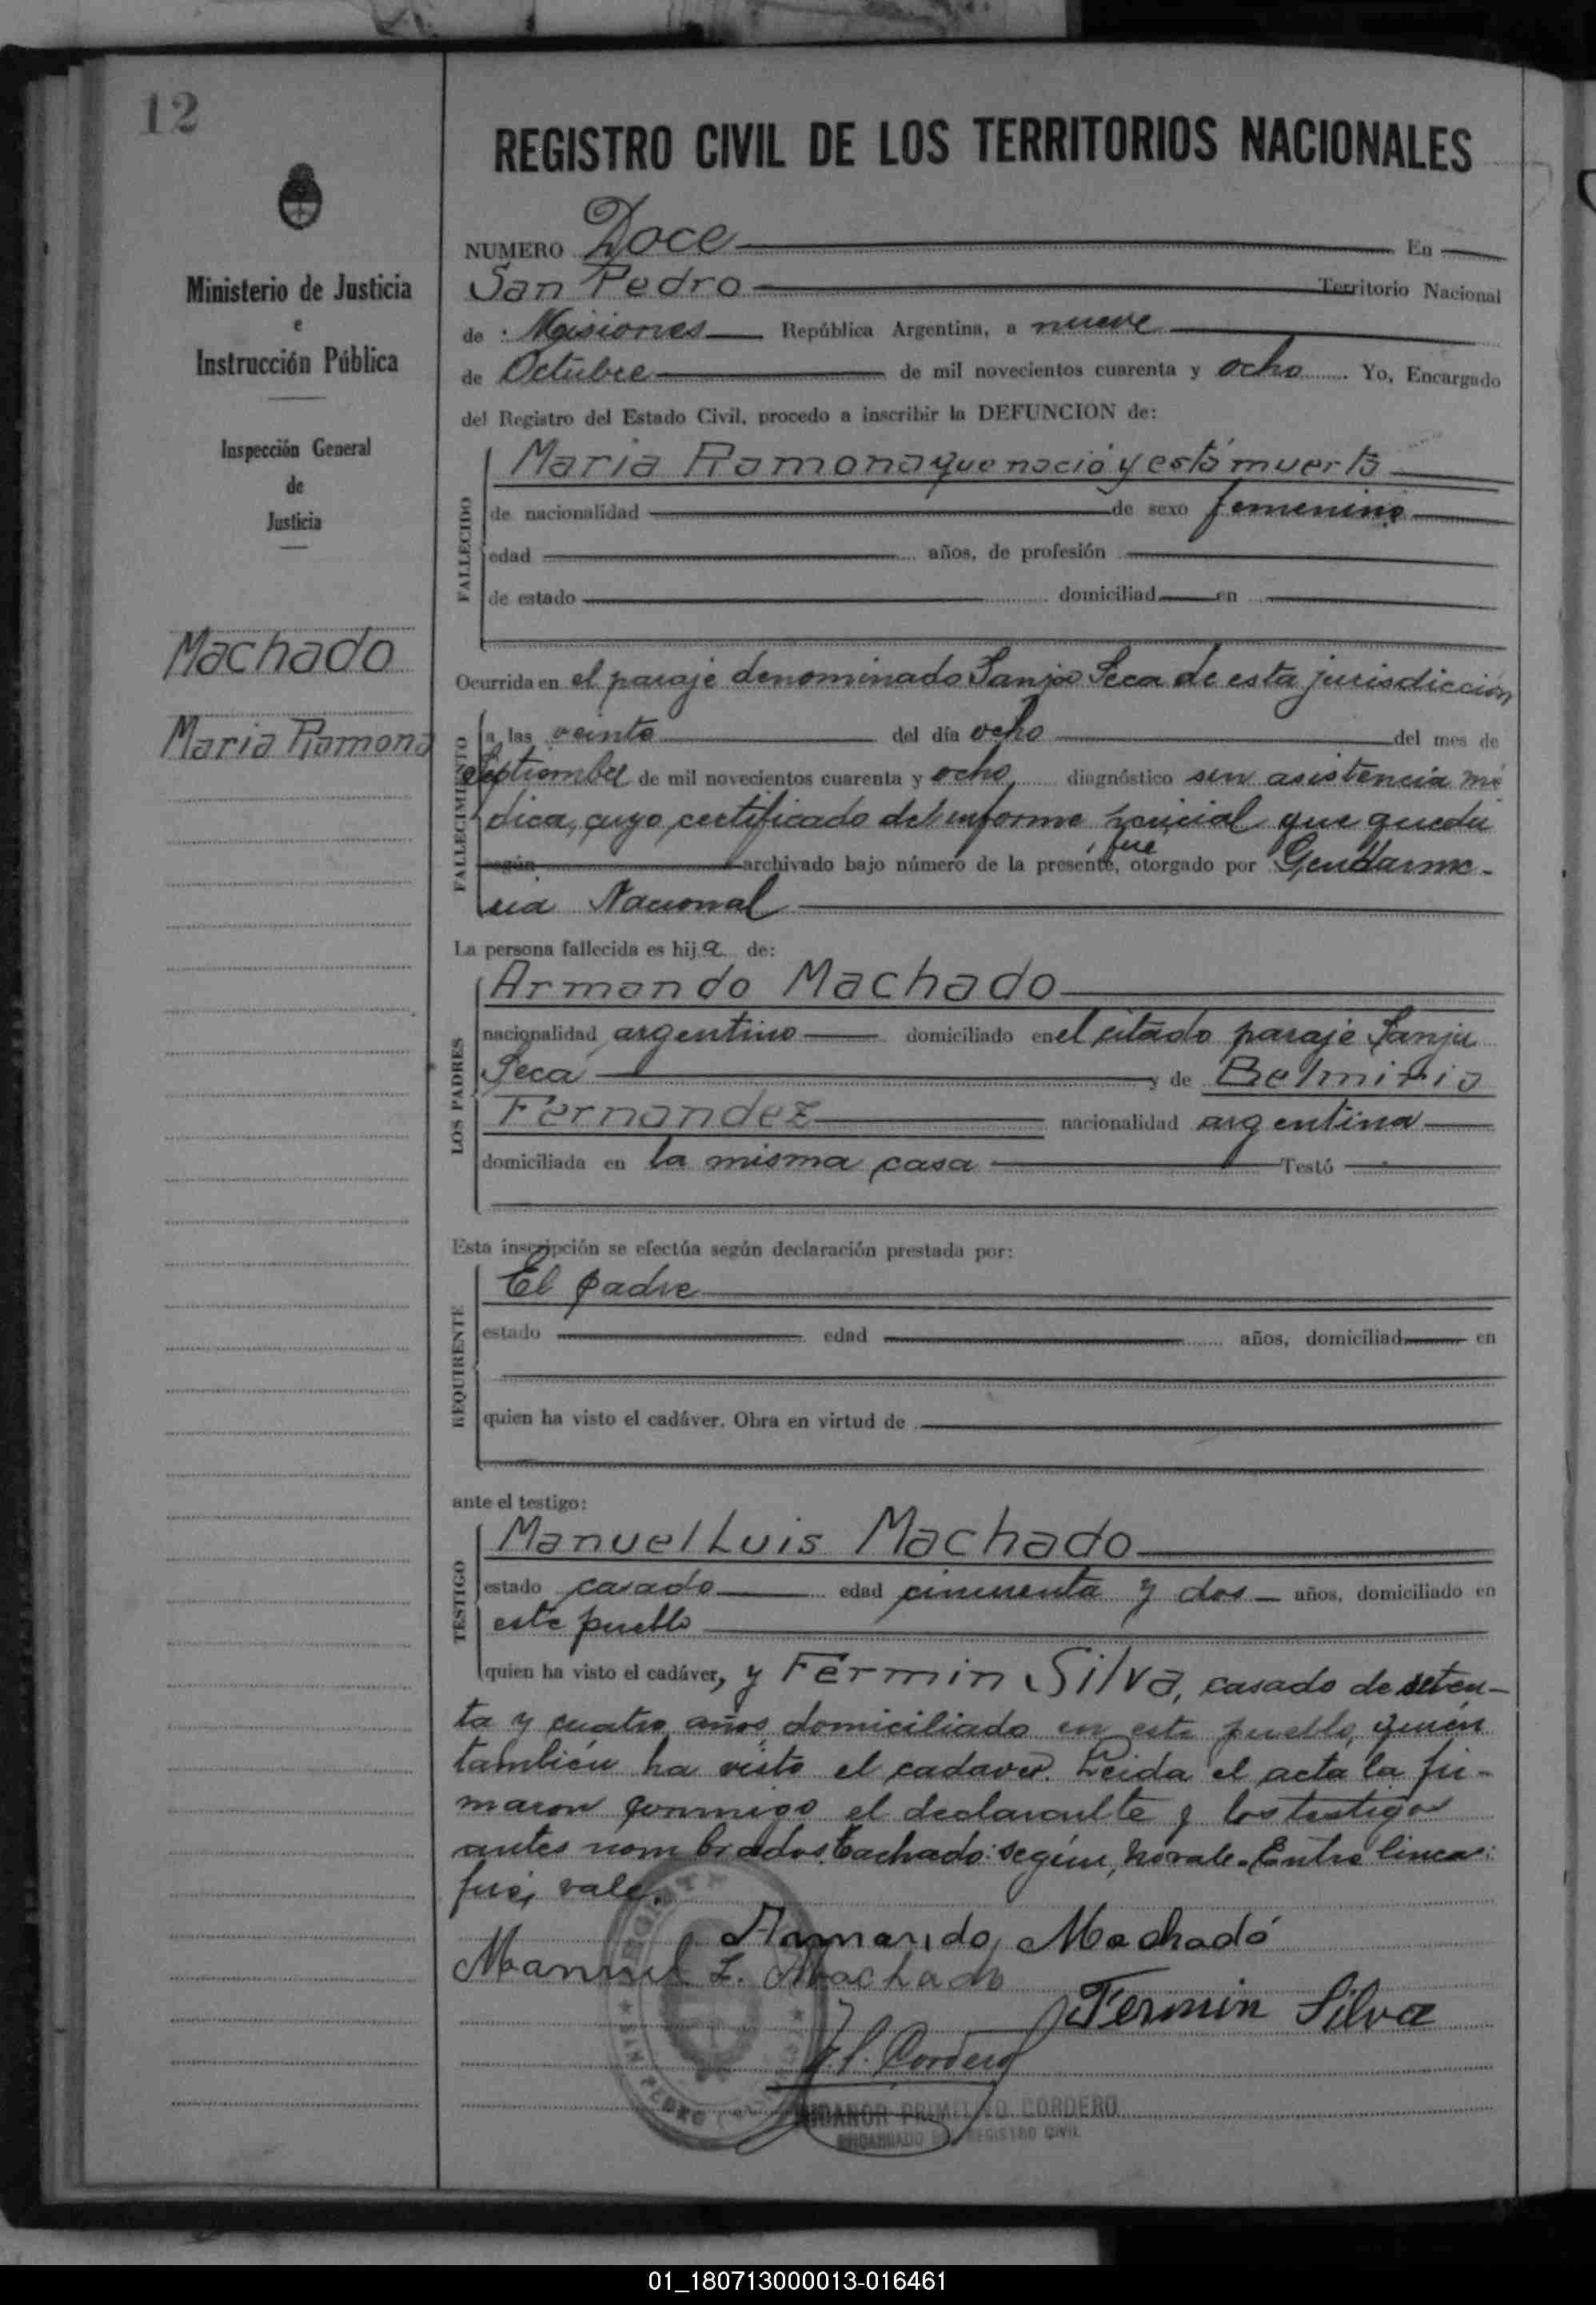 12
REGISTRO CIVIL DE LOS TERRITORIOS NACIONALES
Ministerio de Justicia
e
Instrucción Pública
Inspección General
de
Justicia
Machado
Maria Ramona
NUMERO Doce En
San Pedro Territorio Nacional
de Misiones República Argentina, a nueve
de Octubre de mil novecientos cuarenta y ocho Yo, Encargado
del Registro del Estado Civil, procedo a inscribir la DEFUNCION de:
FALLECIDO
Maria Ramona que nació y está muerta
de nacionalidad de sexo femenino
edad años, de profesión
de estado domiciliad en
Ocurrida en el paraje denominado Sanja Seca de esta jurisdicción
FALLECIMIENTO
a las veinte del día ocho del mes de
Septiembre de mil novecientos cuarenta y ocho diagnóstico sin asistencia mé
dica, cuyo certificado del informe que queda
según archivado bajo número de la presente, fue otorgado por Gendarme-
ria Nacional
La persona fallecida es hija de:
LOS PADRES
Armando Machado
nacionalidad argentino domiciliado en el citado paraje Sanja
Seca y de Belmiria
Fernandez nacionalidad argentina
domiciliada en la misma casa Testó
Esta inscripción se efectúa según declaración prestada por:
REQUIRENTE
El padre
estado edad años, domiciliad en
quien ha visto el cadáver. Obra en virtud de
ante el testigo:
TESTIGO
Manuel Luis Machado
estado casado edad cincuenta y dos años, domiciliado en
este pueblo
quien ha visto el cadáver, y Fermin Silva, casado de seten-
ta y cuatro años, domiciliado en este pueblo, quien
también ha visto el cadaver. Leida el acta la fir-
maron conmigo el declarante y los testigos
antes nombrados. Tachado: según, no vale. Entre lineas:
fué, vale.
Armando Machado
Manuel L. Machado
Fermin Silva
Cordero
SAN PEDRO
NICANOR PRIMITIVO CORDERO
ENCARGADO DEL REGISTRO CIVIL
01_180713000013-016461